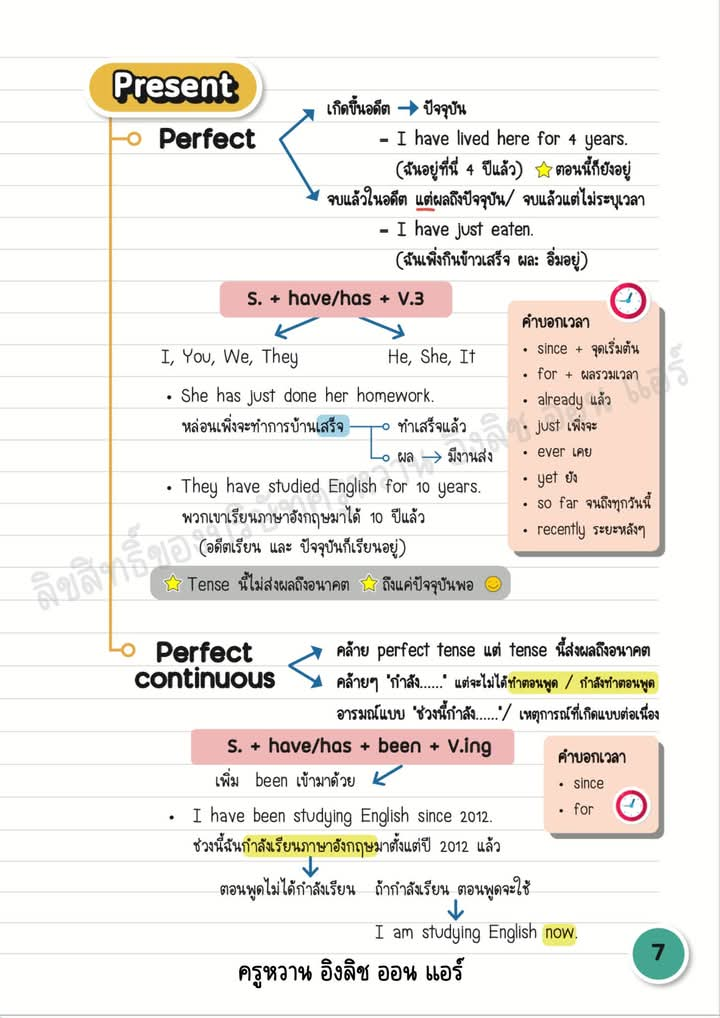 Present
Perfect
เกิดขึ้นอดีต → ปัจจุบัน
- I have lived here for 4 years.
(ฉันอยู่ที่นี่ 4 ปีแล้ว) ⭐ ตอนนี้ก็ยังอยู่
จบแล้วในอดีต แต่ผลถึงปัจจุบัน/ จบแล้วแต่ไม่ระบุเวลา
- I have just eaten.
(ฉันเพิ่งกินข้าวเสร็จ ผล: อิ่มอยู่)
S. + have/has + V.3
I, You, We, They
He, She, It
• She has just done her homework.
หล่อนเพิ่งจะทำการบ้านเสร็จ
ทำเสร็จแล้ว
ผล → มีงานส่ง
• They have studied English for 10 years.
พวกเขาเรียนภาษาอังกฤษมาได้ 10 ปีแล้ว
(อดีตเรียน และ ปัจจุบันก็เรียนอยู่)
⭐ Tense นี้ไม่ส่งผลถึงอนาคต ⭐ ถึงแค่ปัจจุบันพอ 🙂
คำบอกเวลา
• since + จุดเริ่มต้น
• for + ผลรวมเวลา
• already แล้ว
• just เพิ่งจะ
• ever เคย
• yet ยัง
• so far จนถึงทุกวันนี้
• recently ระยะหลังๆ
ลิขสิทธิ์ของบริษัทครูหวาน อิงลิช ออน แอร์
Perfect
continuous
คล้าย perfect tense แต่ tense นี้ส่งผลถึงอนาคต
คล้ายๆ "กำลัง......" แต่จะไม่ได้ทำตอนพูด / กำลังทำตอนพูด
อารมณ์แบบ "ช่วงนี้กำลัง......"/ เหตุการณ์ที่เกิดแบบต่อเนื่อง
S. + have/has + been + V.ing
เพิ่ม been เข้ามาด้วย
• I have been studying English since 2012.
ช่วงนี้ฉันกำลังเรียนภาษาอังกฤษมาตั้งแต่ปี 2012 แล้ว
ตอนพูดไม่ได้กำลังเรียน ถ้ากำลังเรียน ตอนพูดจะใช้
I am studying English now.
คำบอกเวลา
• since
• for
7
ครูหวาน อิงลิช ออน แอร์